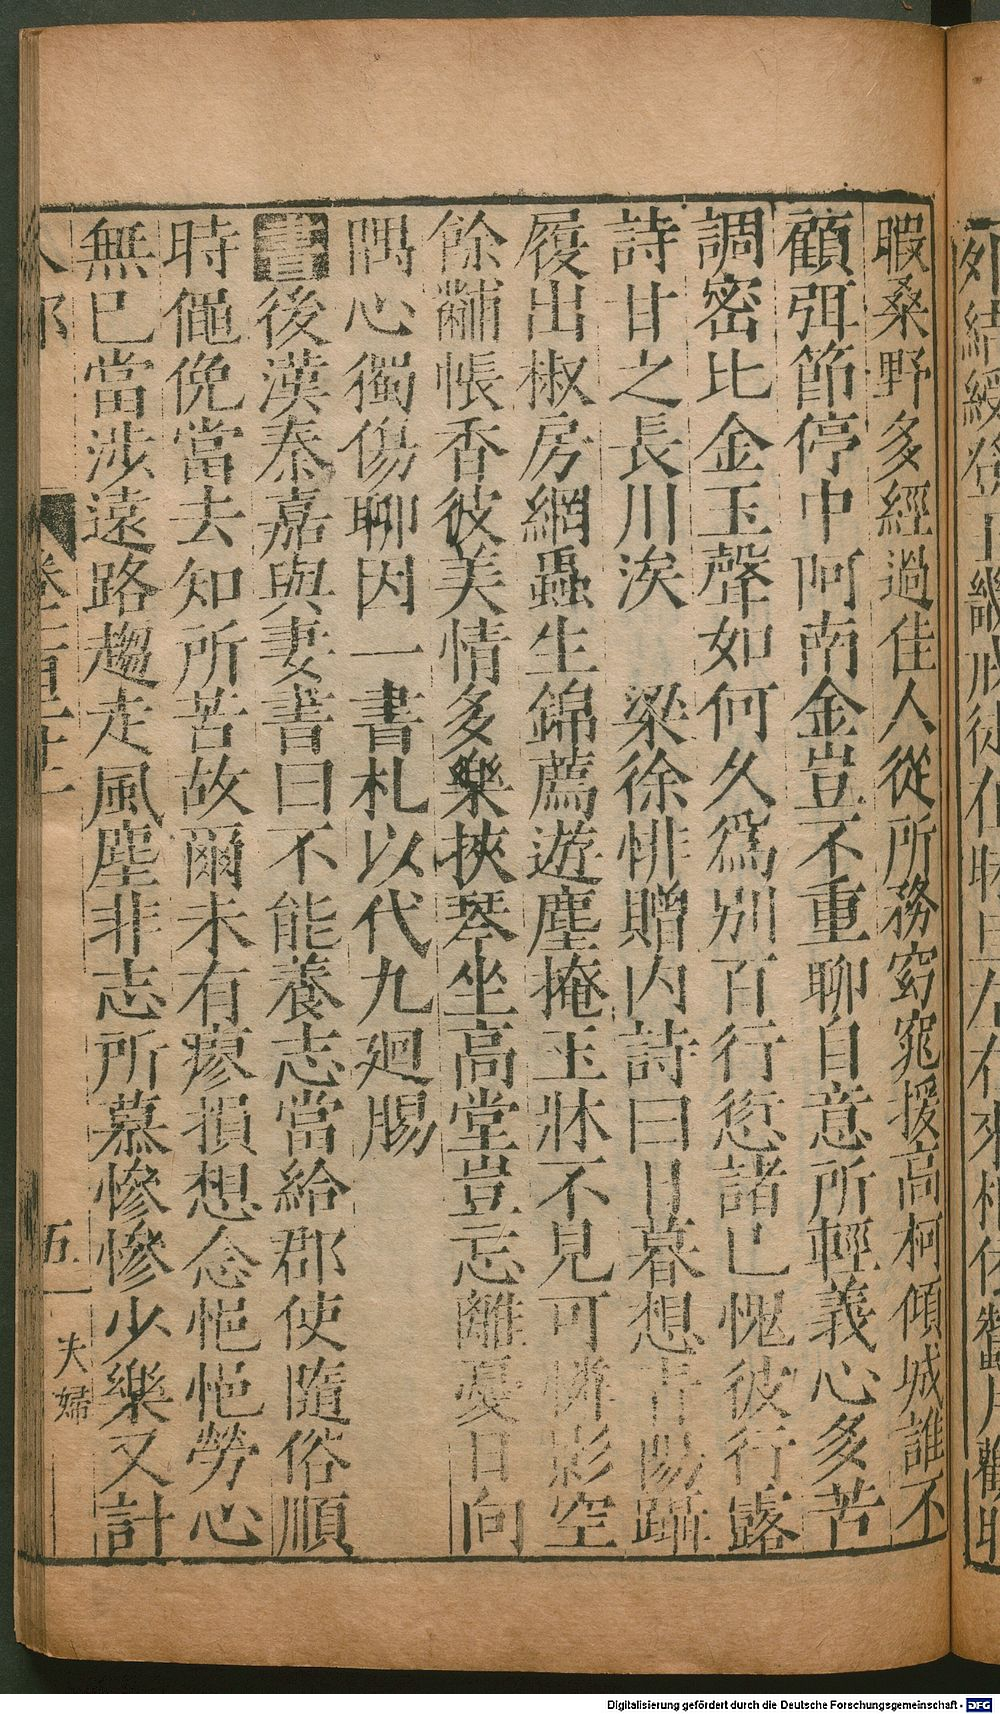 暇桑野多經過佳人從所務窈窕援高柯傾城誰不
顧弭節停中阿南金豈不重聊自意所輕義心多苦
調密比金玉聲如何久爲别百行愆諸已愧彼行露
詩甘之長川涘　梁徐悱贈内詩曰日暮想青陽躡
履出椒房網蟲生錦薦遊塵掩玉牀不見可憐影空
餘黼帳香彼美情多樂挾琴坐高堂豈忘離憂日向
隅心獨傷聊因一書札以代九廻腸
書後漢秦嘉與妻書曰不能養志當給郡使隨俗順
時僶俛當去知所苦故爾未有瘳損想念悒悒勞心
無已當涉遠路趨走風塵非志所慕慘慘少樂又計
五
夫婦
Digitalisierung gefördert durch die Deutsche Forschungsgemeinschaft - DFG